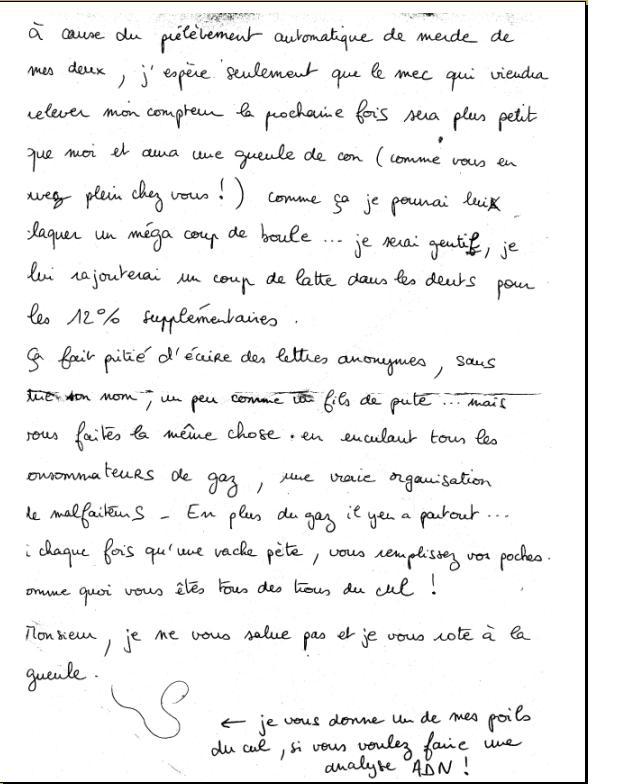 à cause du prélèvement automatique de merde de
mes deux, j'espère seulement que le mec qui viendra
relever mon compteur la prochaine fois sera plus petit
que moi et aura une gueule de con (comme vous en
avez plein chez vous !) comme ça je pourrai lui
claquer un méga coup de boule ... je serai gentil, je
lui rajouterai un coup de latte dans les dents pour
les 12% supplémentaires.
ça fait pitié d'écrire des lettres anonymes, sans
son nom, un peu comme un fils de pute ... mais
vous faites la même chose. en enculant tous les
onsommateurs de gaz, une vraie organisation
de malfaiteurS - En plus du gaz il y en a partout ...
à chaque fois qu'une vache pète, vous remplissez vos poches.
omme quoi vous êtes tous des trous du cul !
Monsieur, je ne vous salue pas et je vous rote à la
gueule.
← je vous donne un de mes poils
du cul, si vous voulez faire une
analyse ADN !